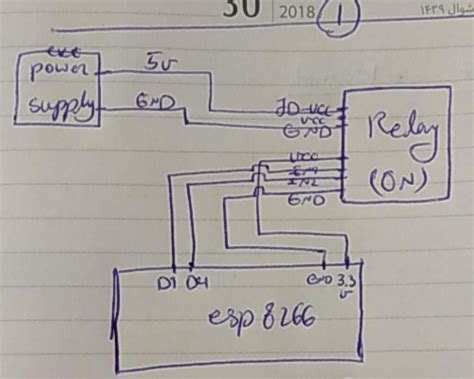 30 2018 1 شوال ١٤٣٩
ext
power
supply
5v
GND
JD-VCC
VCC
GND
Relay
(ON)
VCC
IN1
IN2
GND
D1 D4 GND 3.3
v
esp 8266